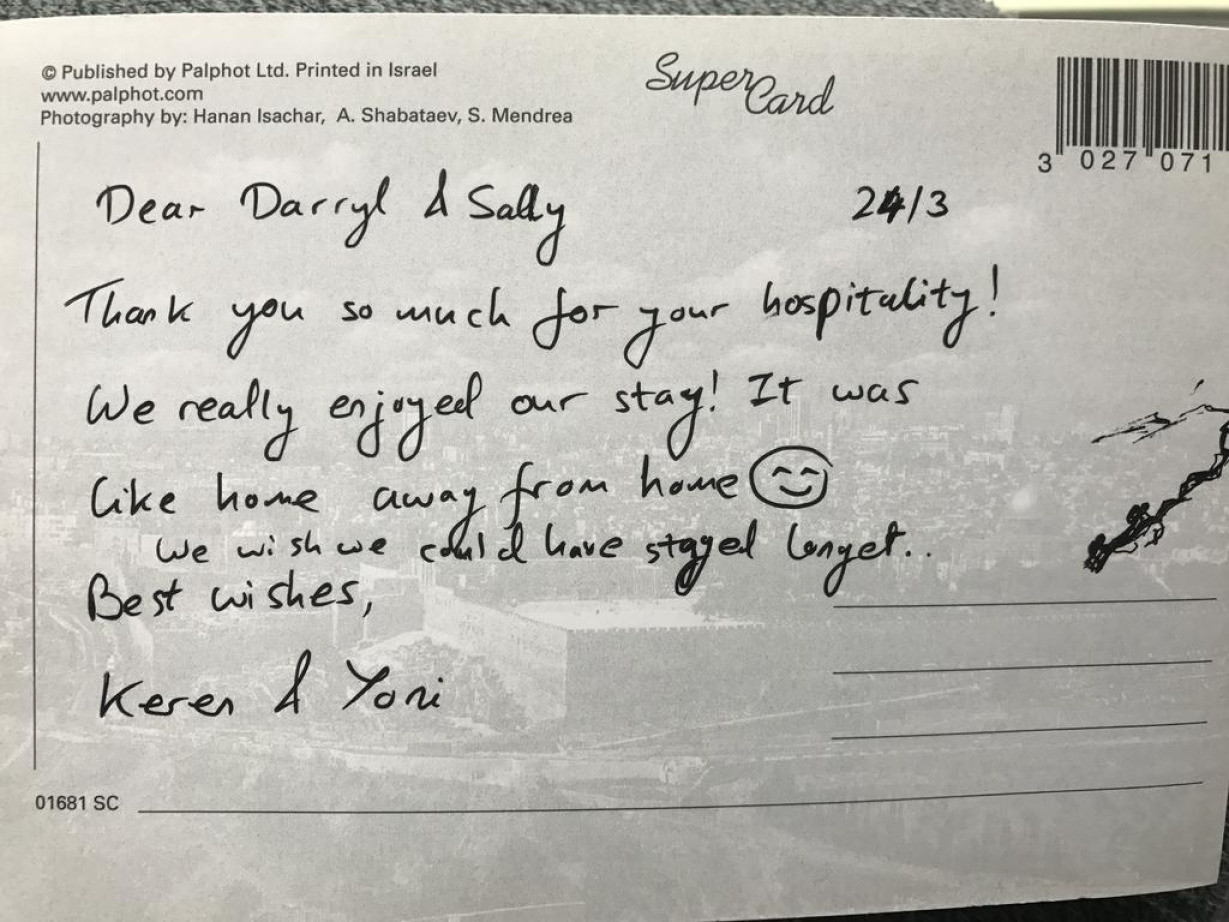 © Published by Palphot Ltd. Printed in Israel
www.palphot.com
Photography by: Hanan Isachar, A. Shabataev, S. Mendrea
Super Card
3 027 071
Dear Darryl & Sally
24/3
Thank you so much for your hospitality!
We really enjoyed our stay! It was
like home away from home 😊
We wish we could have stayed longer..
Best wishes,
Keren & Yoni
01681 SC